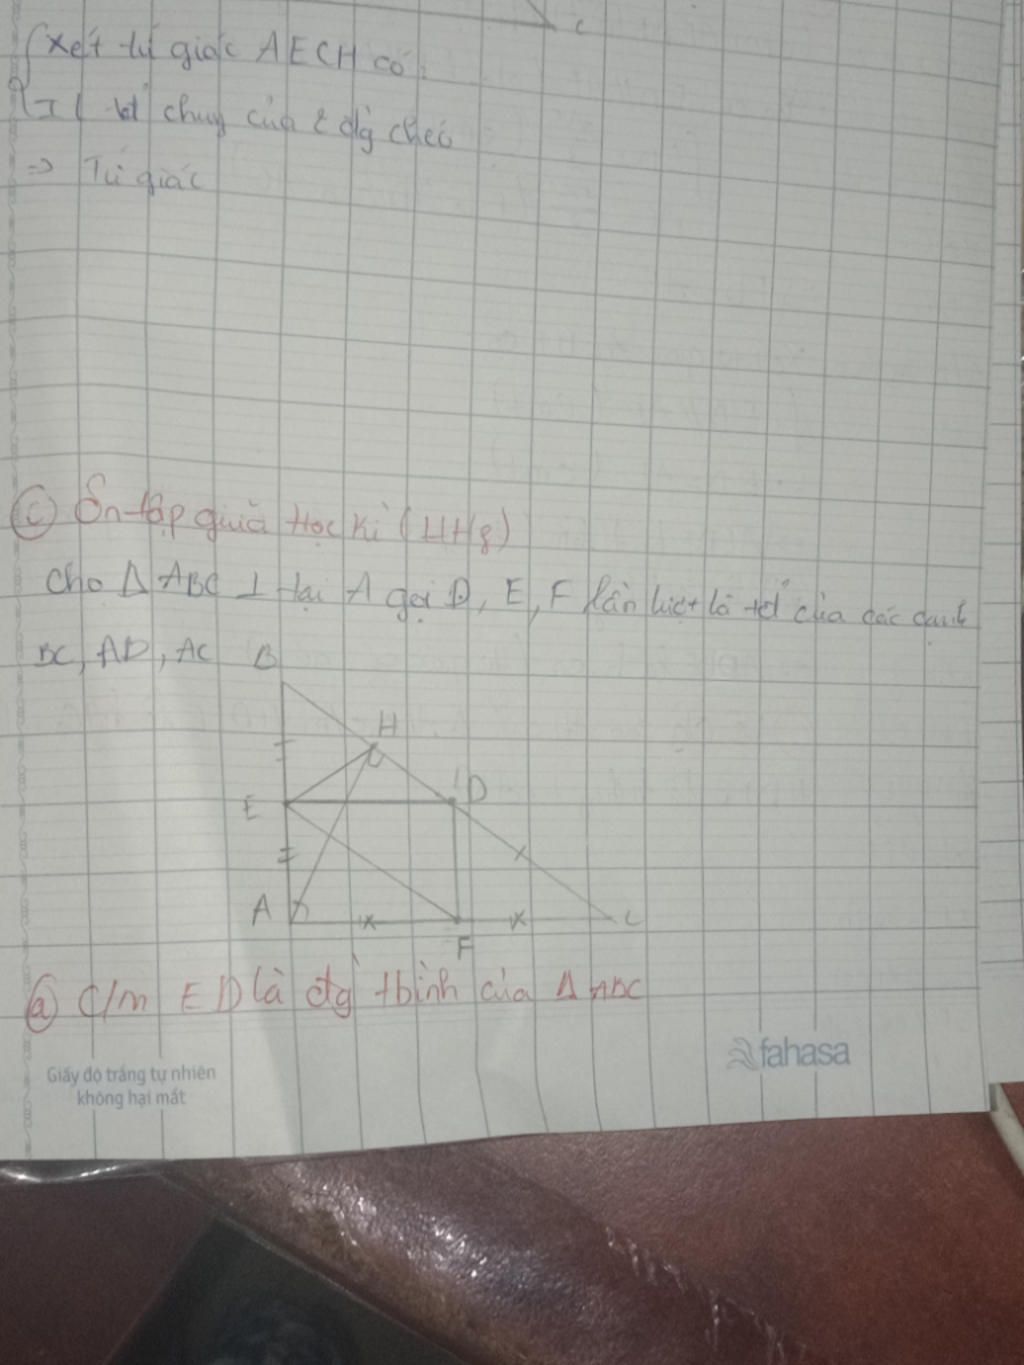 C
Xét tứ giác AECH có:
I là tđ chung của 2 đg chéo
=> Tứ giác
© Ôn tập giữa Học Kì (HH8)
Cho Δ ABC ⊥ tại A gọi D, E, F lần lượt là tđ của các cạnh
BC, AD, AC
B
H
E
D
A
F
C
ⓐ C/m ED là đg tbình của Δ ABC
fahasa
Giấy độ trắng tự nhiên
không hại mắt